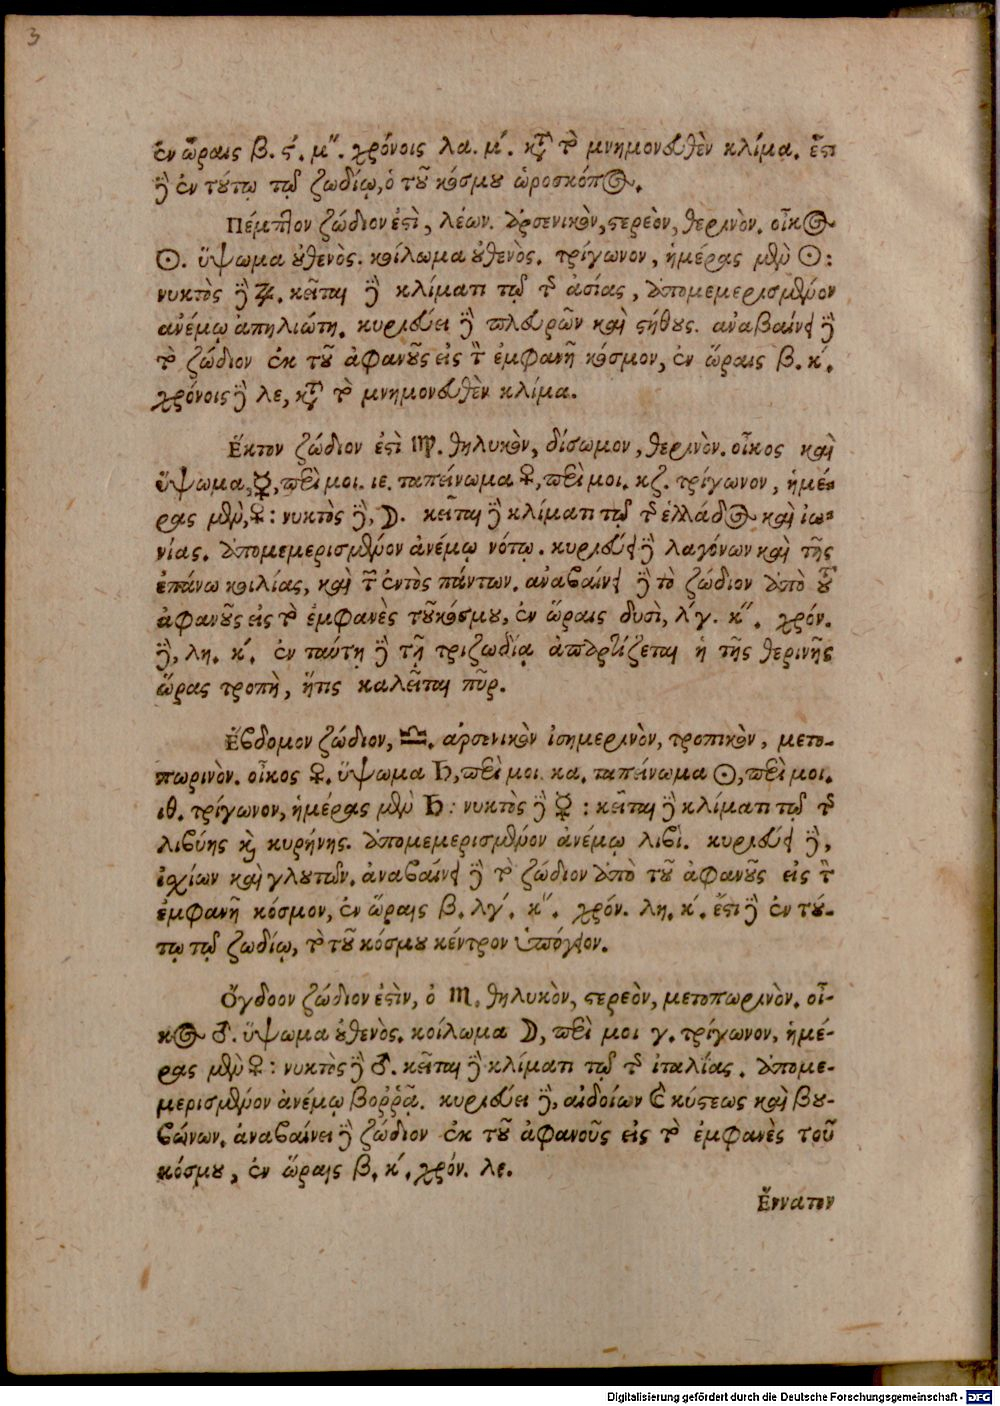 3
ἐν ὥραις β. ϛ΄. μ″. χρόνοις λα. μ΄. κατὰ τὸ μνημονευθὲν κλίμα. ἔστι
δὲ ἐν τούτῳ τῷ ζωδίῳ, ὁ τοῦ κόσμου ὡροσκόπος.
Πέμπτον ζώδιον ἐστὶ, λέων. ἀρσενικὸν, στερεὸν, θερινὸν. οἶκος
☉. ὕψωμα οὐθενὸς. κοίλωμα οὐθενὸς. τρίγωνον, ἡμέρας μὲν ☉:
νυκτὸς δὲ ♃. κεῖται δὲ κλίματι τῷ τῆς ἀσίας, ἀπομεμερισμένον
ἀνέμῳ ἀπηλιώτη. κυριεύει δὲ πλευρῶν καὶ στήθους. ἀναβαίνει δὲ
τὸ ζώδιον ἐκ τοῦ ἀφανοῦς εἰς τὸν ἐμφανῆ κόσμον, ἐν ὥραις β. κ΄.
χρόνοις δὲ λε, κατὰ τὸ μνημονευθὲν κλίμα.
Ἕκτον ζώδιον ἐστὶ ♍. θηλυκὸν, δίσωμον, θερινὸν. οἶκος καὶ
ὕψωμα, ☿, περὶ μοι. ιε. ταπείνωμα ♀, περὶ μοι. κζ. τρίγωνον, ἡμέ-
ρας μὲν, ♀: νυκτὸς δὲ, ☽. κεῖται δὲ κλίματι τῷ τῆς ἑλλάδος καὶ ἰω-
νίας. ἀπομεμερισμένον ἀνέμῳ νότῳ. κυριεύει δὲ λαγόνων καὶ τῆς
ἐπάνω κοιλίας, καὶ τῶν ἐντὸς πάντων. ἀναβαίνει δὲ τὸ ζώδιον ἀπὸ τοῦ
ἀφανοῦς εἰς τὸ ἐμφανὲς τοῦ κόσμου, ἐν ὥραις δυσὶ, λ΄γ. κ″. χρόν.
δὲ, λη. κ΄. ἐν ταύτῃ δὲ τῇ τριζωδίᾳ ἀπαρτίζεται ἡ τῆς θερινῆς
ὥρας τροπὴ, ἥτις καλεῖται πῦρ.
Ἕβδομον ζώδιον, ♎. ἀρσενικὸν ἰσημερινὸν, τροπικὸν, μετο-
πωρινὸν. οἶκος ♀. ὕψωμα ♄, περὶ μοι. κα. ταπείνωμα ☉, περὶ μοι.
ιθ. τρίγωνον, ἡμέρας μὲν ♄: νυκτὸς δὲ ☿: κεῖται δὲ κλίματι τῷ τῆς
λιβύης καὶ κυρήνης. ἀπομεμερισμένον ἀνέμῳ λιβὶ. κυριεύει δὲ,
ἰσχίων καὶ γλουτῶν. ἀναβαίνει δὲ τὸ ζώδιον ἀπὸ τοῦ ἀφανοῦς εἰς τὸν
ἐμφανῆ κόσμον, ἐν ὥραις β. λγ΄. κ″. χρόν. λη. κ΄. ἔστι δὲ ἐν τού-
τῳ τῷ ζωδίῳ, τὸ τοῦ κόσμου κέντρον ὑπόγειον.
Ὄγδοον ζώδιον ἐστὶν, ὁ ♏. θηλυκὸν, στερεὸν, μετοπωρινὸν. οἶ-
κος ♂. ὕψωμα οὐθενὸς. κοίλωμα ☽, περὶ μοι γ. τρίγωνον, ἡμέ-
ρας μὲν ♀: νυκτὸς δὲ ♂. κεῖται δὲ κλίματι τῷ τῆς ἰταλίας. ἀπομε-
μερισμένον ἀνέμῳ βοῤῥᾷ. κυριεύει δὲ, αἰδοίων καὶ κύστεως καὶ βου-
βώνων. ἀναβαίνει δὲ ζώδιον ἐκ τοῦ ἀφανοῦς εἰς τὸ ἐμφανὲς τοῦ
κόσμου, ἐν ὥραις β. κ΄. χρόν. λε.
Ἔννατον
Digitalisierung gefördert durch die Deutsche Forschungsgemeinschaft - DFG